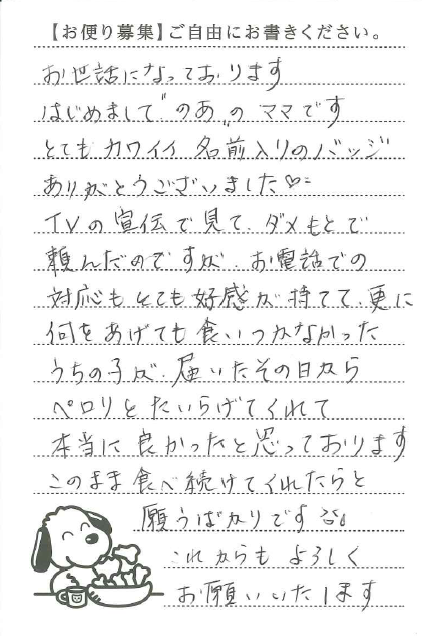 【お便り募集】ご自由にお書きください。
お世話になっております
はじめまして"のあ"の ママです
とても カワイイ 名前入りのバッジ
ありがとうございました♡
TVの宣伝で見て、ダメもとで
頼んだのですが、お電話での
対応も とても 好感が 持てて、更に
何をあげても 食いつかなかった
うちの子が、届いたその日から
ペロリと たいらげてくれて
本当に 良かったと思っております
このまま食べ続けてくれたらと
願うばかりです
これからも よろしく
お願いいたします